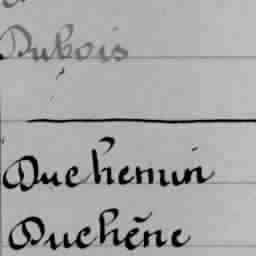 Dubois
Duchemin
Duchêne